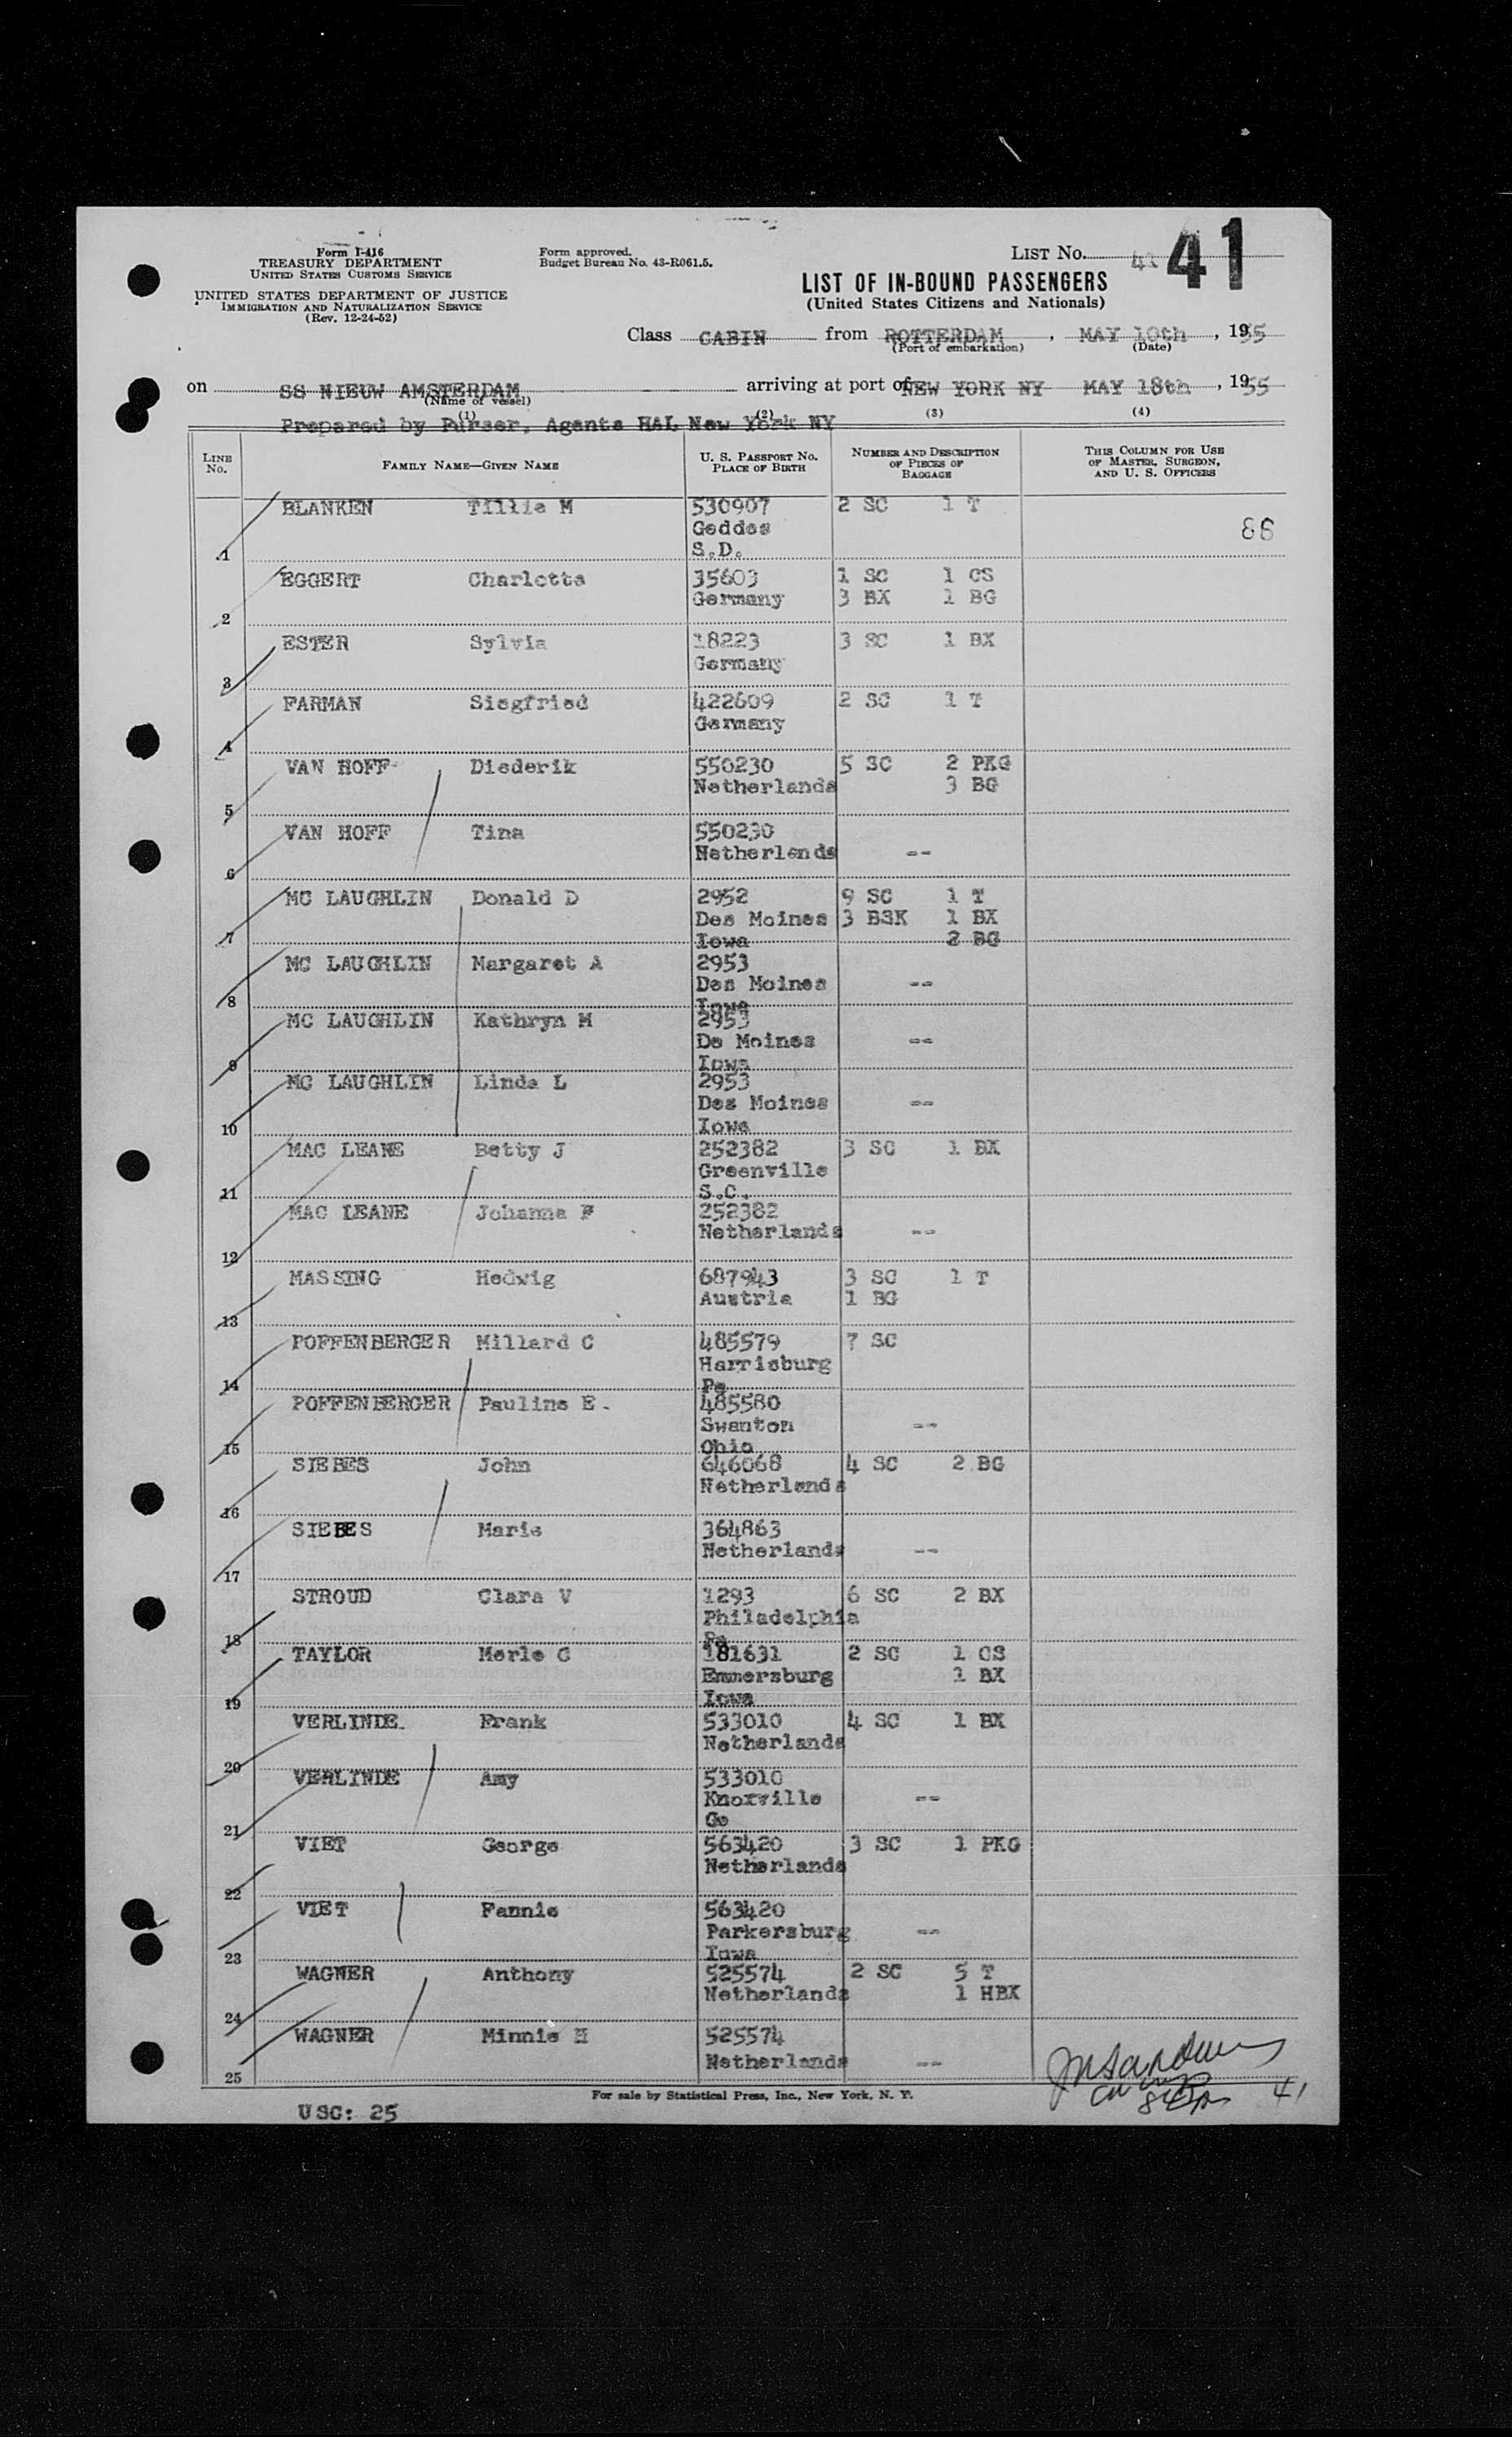 Form I-416
TREASURY DEPARTMENT
UNITED STATES CUSTOMS SERVICE
UNITED STATES DEPARTMENT OF JUSTICE
IMMIGRATION AND NATURALIZATION SERVICE
(Rev. 12-24-52)
Form approved.
Budget Bureau No. 43-R061.5.
LIST No. 41
LIST OF IN-BOUND PASSENGERS
(United States Citizens and Nationals)
Class CABIN from ROTTERDAM, MAY 10th, 1955
(Port of embarkation) (Date)
on SS NIEUW AMSTERDAM arriving at port of NEW YORK NY MAY 18th, 1955
(Name of vessel)
(1) (2) (3) (4)
Prepared by Purser, Agents HAL New York NY
LINE No. FAMILY NAME—GIVEN NAME U. S. PASSPORT No. PLACE OF BIRTH NUMBER AND DESCRIPTION OF PIECES OF BAGGAGE THIS COLUMN FOR USE OF MASTER, SURGEON, AND U. S. OFFICERS
BLANKEN Tillie M 530907 2 SC 1 T
Geddes 86
1 S.D.
EGGERT Charlotte 35603 1 SC 1 CS
Germany 3 BX 1 BG
2
ESTER Sylvia 18223 3 SC 1 BX
Germany
3
FARMAN Siegfried 422609 2 SC 1 T
Germany
4
VAN HOFF Diederik 550230 5 SC 2 PKG
Netherlands 3 BG
5
VAN HOFF Tina 550230
Netherlands --
6
MC LAUGHLIN Donald D 2952 9 SC 1 T
Des Moines 3 BSK 1 BX
7 Iowa 2 BG
MC LAUGHLIN Margaret A 2953
Des Moines --
8 Iowa
MC LAUGHLIN Kathryn M 2953
De Moines --
9 Iowa
MC LAUGHLIN Linda L 2953
Des Moines --
10 Iowa
MAC LEANE Betty J 252382 3 SC 1 BX
Greenville
11 S.C.
MAC LEANE Johanna F 252382
Netherlands --
12
MASSING Hedwig 687943 3 SC 1 T
Austria 1 BG
13
POFFENBERGER Millard C 485579 7 SC
Harrisburg
14 Pa
POFFENBERGER Pauline E. 485580
Swanton --
15 Ohio
SIEBES John 646068 4 SC 2 BG
Netherlands
16
SIEBES Marie 364863
Netherlands --
17
STROUD Clara V 1293 6 SC 2 BX
Philadelphia
18 Pa
TAYLOR Merle C 181631 2 SC 1 CS
Emmersburg 1 BX
19 Iowa
VERLINDE Frank 533010 4 SC 1 BX
Netherlands
20
VERLINDE Amy 533010
Knoxville --
21 Ge
VIET George 563420 3 SC 1 PKG
Netherlands
22
VIET Fannie 563420
Parkersburg --
23 Iowa
WAGNER Anthony 525574 2 SC 5 T
Netherlands 1 HBX
24
WAGNER Minnie H 525574
Netherlands --
25
For sale by Statistical Press, Inc., New York, N. Y.
41
USC: 25